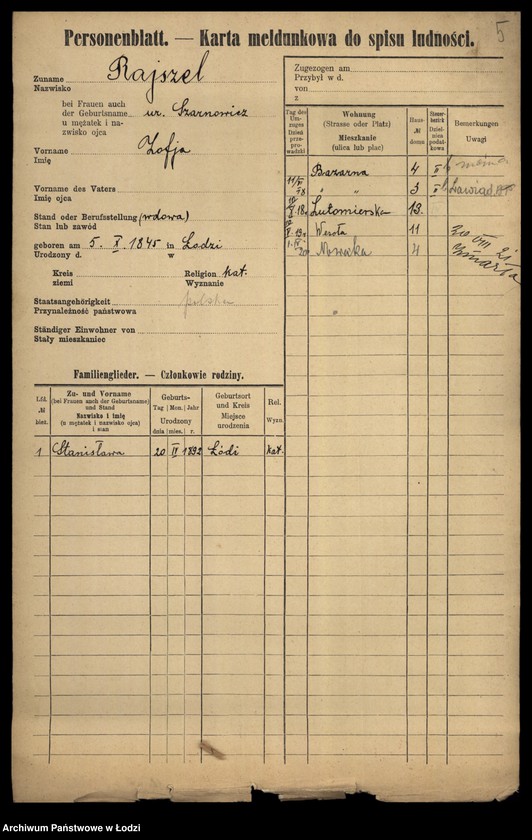 5
Personenblatt. — Karta meldunkowa do spisu ludności.
Zuname Rajszel
Nazwisko
bei Frauen auch
der Geburtsname ur. Szarnowicz
u mężatek i na-
zwisko ojca
Vorname Zofja
Imię
Vorname des Vaters
Imię ojca
Stand oder Berufsstellung (wdowa)
Stan lub zawód
geboren am 5. X. 1845 in Łodzi
Urodzony d. w
Kreis Religion kat.
ziemi Wyznanie
Staatsangehörigkeit polska
Przynależność państwowa
Ständiger Einwohner von
Stały mieszkaniec
Zugezogen am
Przybył w d.
von
z
Tag des Um-zuges Dzień prze-pro-wadzki
Wohnung (Strasse oder Platz) Mieszkanie (ulica lub plac)
Haus- № domu
Steuer-bezirk Dziel-nica podat-kowa
Bemerkungen Uwagi
Bazarna 4 II
11/VI " " 3 II
18. Lutomierska 13.
19. Wesoła 11
1.IV 20 4
VIII 21
zmarła
Familienglieder. — Członkowie rodziny.
Lfd. № bież.
Zu- und Vorname (bei Frauen auch der Geburtsname) und Stand Nazwisko i imię (u mężatek i nazwisko ojca) i stan
Geburts- Tag Mon. Jahr Urodzony dnia mies. r.
Geburtsort und Kreis Miejsce urodzenia
Rel. Wyzn.
1 Stanisława 20 IV 1892 Łódź kat.
Archiwum Państwowe w Łodzi